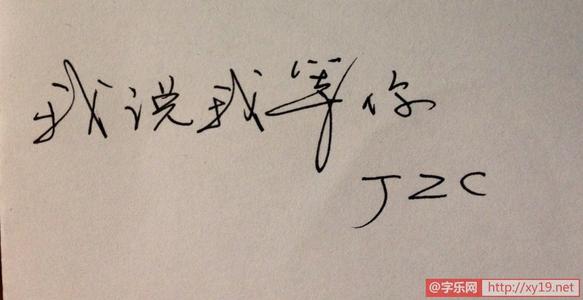 我说我等你
JZC
@字乐网 http://xy19.net